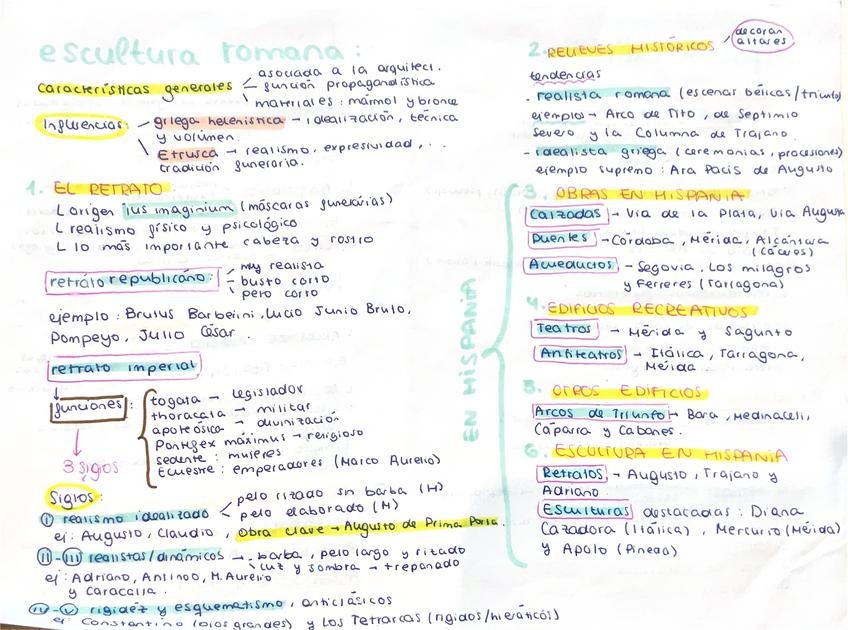 escultura romana:
características generales - asociada a la arquitect.
- función propagandística
materiales: mármol y bronce
Influencias: griega helenística → idealización, técnica
y volumen.
Etrusca → realismo, expresividad, ...
tradición funeraria.
1. EL RETRATO
L origen ius imaginium (máscaras funerarias)
L realismo físico y psicológico
L lo más importante cabeza y rostro
retrato republicano: - muy realista
- busto corto
- pelo corto
ejemplo: Brutus Barberini, Lucio Junio Bruto,
Pompeyo, Julio César.
retrato imperial
funciones:
togata → legislador
thoracata → militar
apoteósica → divinización
Pontifex máximus → religioso
sedente: mujeres
Ecuestre: emperadores (Marco Aurelio)
3 siglos
Siglos:
I realismo idealizado < pelo rizado sin barba (H)
pelo elaborado (M)
ej: Augusto, Claudio, Obra clave → Augusto de Prima Porta.
II-III realistas/dinámicos → barba, pelo largo y rizado
luz y sombra → trepanado
ej: Adriano, Antinoo, M. Aurelio
y Caracalla.
IV-V rigidez y esquematismo, anticlásicos
ej: Constantino (ojos grandes) y los Tetrarcas (rígidos/hieráticos)
2. RELIEVES HISTÓRICOS, decoran
altares
tendencias
- realista romana (escenas bélicas/triunfo)
ejemplos → Arco de Tito, de Septimio
Severo y la Columna de Trajano
- idealista griega (ceremonias, procesiones)
ejemplo supremo: Ara Pacis de Augusto
EN HISPANIA
3. OBRAS EN HISPANIA
Calzadas → Via de la Plata, Via Augusta
Puentes → Córdoba, Mérida, Alcántara
(Cáceres)
Acueductos - Segovia, Los milagros
y Ferreres (Tarragona)
4. EDIFICIOS RECREATIVOS
Teatros → Mérida y Sagunto
Anfiteatros → Itálica, Tarragona,
Mérida
5. OTROS EDIFICIOS
Arcos de Triunfo → Bara, Medinaceli,
Cáparra y Cabanes.
6. ESCULTURA EN HISPANIA
Retratos → Augusto, Trajano y
Adriano
Esculturas destacadas: Diana
Cazadora (Itálica), Mercurio (Mérida)
y Apolo (Pinedo)